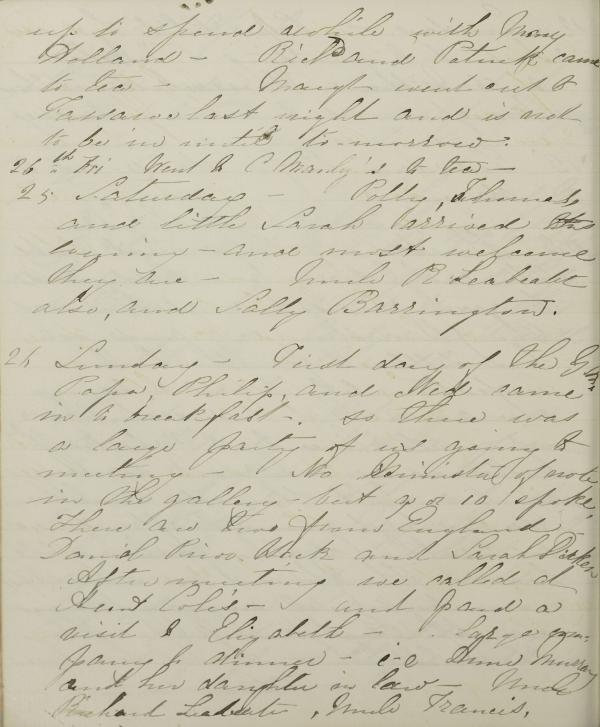 up to spend awhile with Mary
Holland - Rich and Patrick came
to tea - Margt went out to
Fassaroe last night and is not
to be in until to-morrow.
26th Fri Went to C Manly's to tea -
25 Saturday - Polly, Thomas,
and little Sarah arrived this
evening - and most welcome
they are - Uncle R Leabeater
also, and Sally Barrington.
26 Sunday - First day of the Y Mg
Papa, Philip, and Ned came
in to breakfast. so there was
a large party of us going to
meeting - No Minister of note
in the gallery - but 9 or 10 spoke,
There are two from England
David and Sarah
After meeting we called at
Aunt Cole's - and paid a
visit to Elizabeth - Large com-
pany to dinner - i-e Anne Murray
and her daughter in law - Uncle
Richard Leabeater, Uncle Francis,